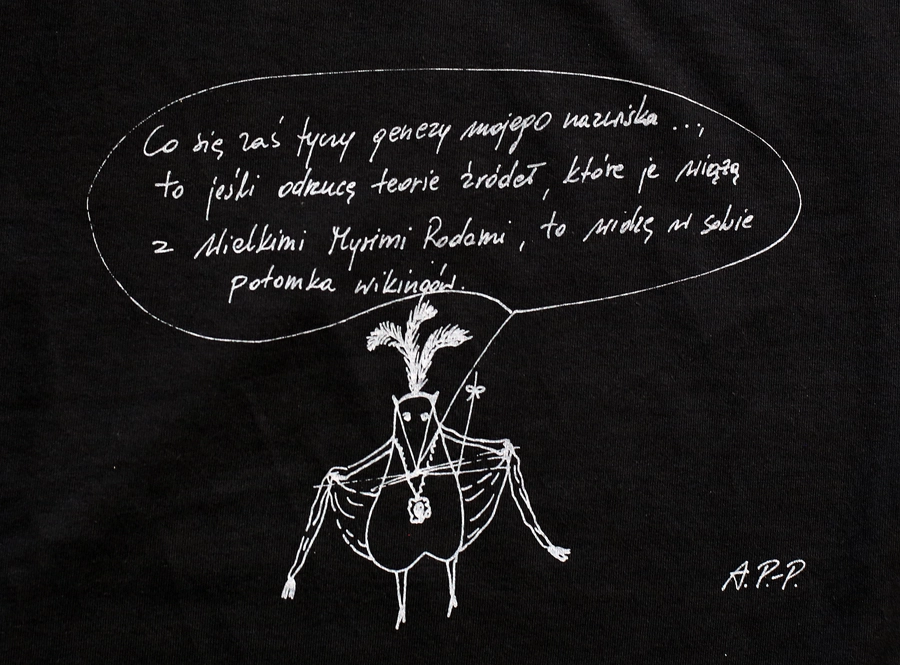 Co się zaś tyczy genezy mojego nazwiska ...,
to jeśli odrzucę teorie źródeł, które je wiążą
z Wielkimi Mysimi Rodami, to widzę w sobie
potomka wikingów.
A.P.-P.